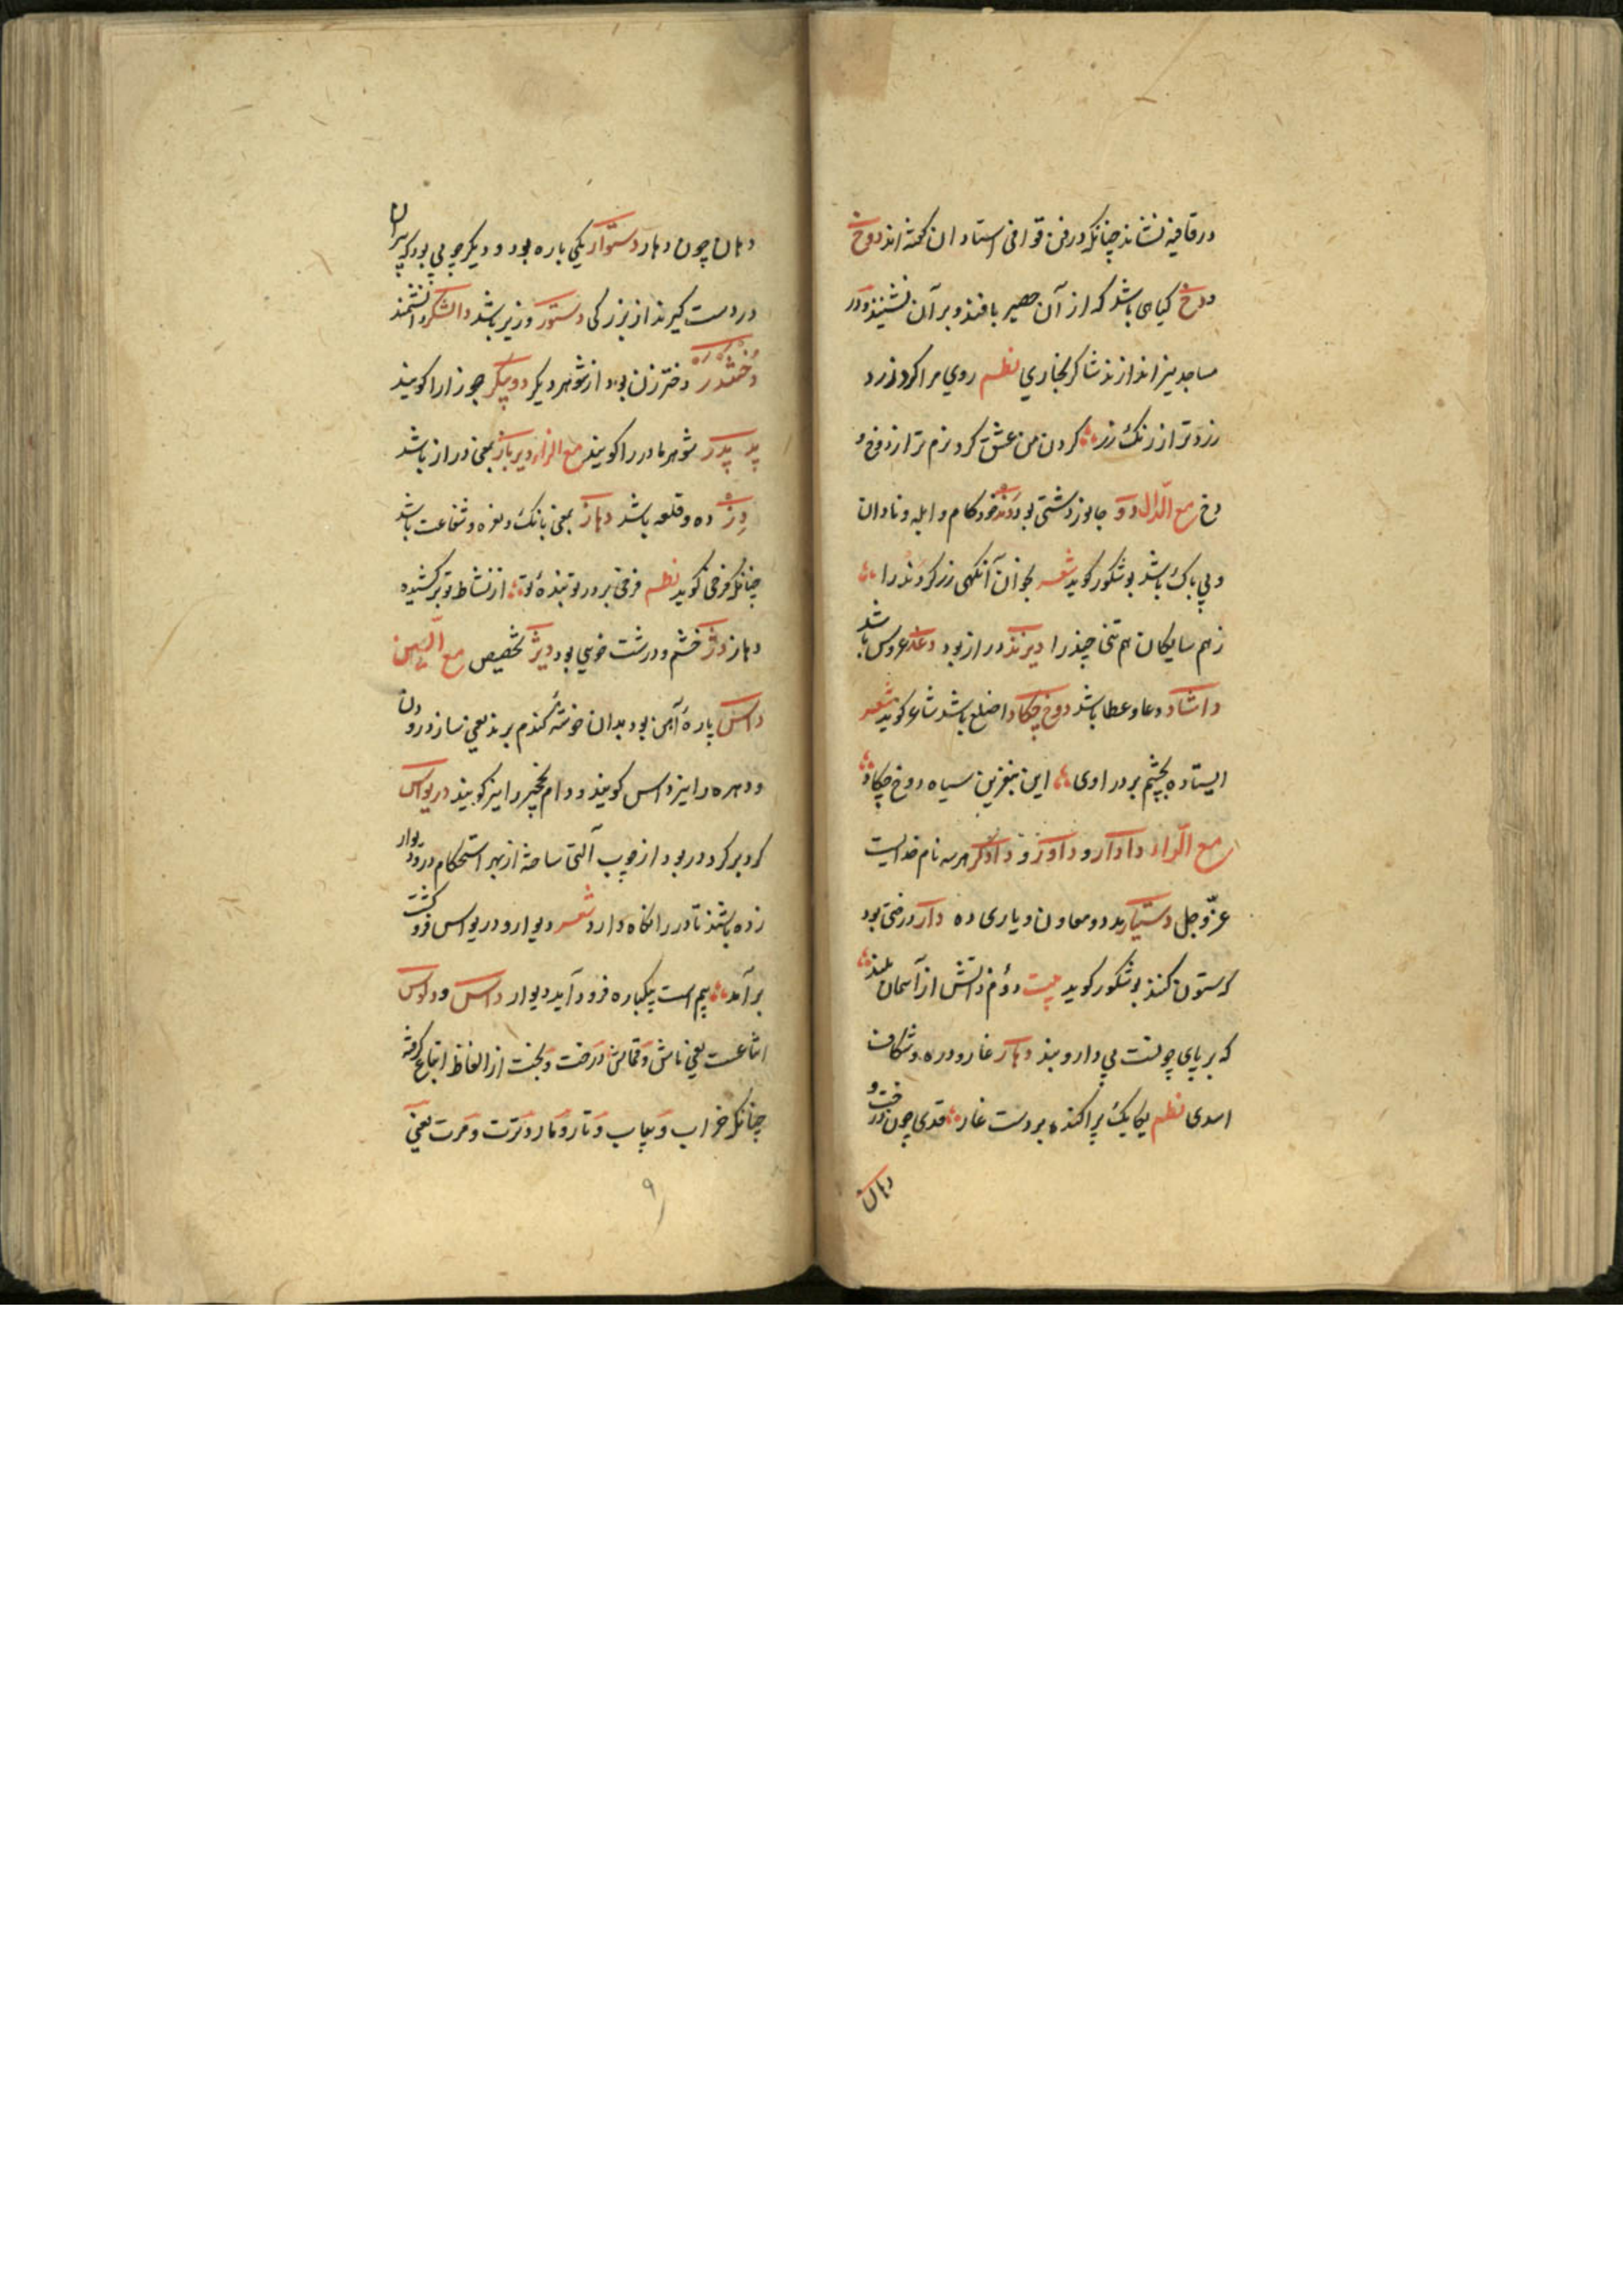 در قافیه نشاند چنانکه در فن قوافی استادان گفته اند دوخ
دوخ کیاهی باشد که از آن حصیر بافند و بر آن نشینند و در
مساجد نیز اندازند شاکر بخاری نظم روی مرا کرد زرد
زردتر از زنک زر کردن من عشق کرد نرم تر از دوخ و
دخ مع الدال دو جانور دشتی بود دند خودکام و ابله و نادان
و بی باک باشد بوشکور کوید شعر آنکهی زر کر دند را
زهم سایکان هم تنی چند را دیرند دراز بود دغد عروس باشد
داشاد دعا و عطا باشد دوخ چکاد اصلع باشد شاعر کوید شعر
ایستاده بخشم بر در اوی این بنفرین سیاه روخ چکاد
مع الراء دادار و داور و دادکر هر سه نام خدایست
عز و جل دستیار مدد و معاون و یاری ده دار درختی بود
کر ستون کنند بوشکور کوید بیت دانش از آسمان بلند
که بر پای چونست بی دار و بند دهار غار و دره و شکاف
اسدی نظم یکایک پراکنده بر دشت غار قدی چون درخت و
دهان
دهان چون دهار دستوار یکی یاره بود و دیکر چوبی بود که پیران
در دست کیرند از بزرکی دستور وزیر باشد دانشکر دانشمند
دختندر دختر زن بود از شوهر دیکر دوپیکر جوزا را کویند
پدر شوهر مادر را کویند مع الزاء دیرباز بمعنی دراز باشد
دز ده و قلعه باشد دهاز بمعنی بانک و نعره و شفاعت باشد
چنانکه فرخی کوید نظم فرخی بر در تو بنده تو از نشاط تو برکشیده
دهاز دژ خشم و درشت خوی بود دیژ تخصیص مع السین
داس پاره آهن بود بدان خوشه کندم برند یعنی ساز درودن
و دهره را نیز داس کویند و دام نخچیر را نیز کویند دریواس
کرد بر کرد در بود از چوب آلتی ساخته از بهر استحکام در و دیوار
زده باشند تا در را نکاه دارد شعر دیوار و دریواس فرو کشت
بر آمد بیم است یکباره فرود آید دیوار داس و دلوس
اتباعست یعنی تاش و قماش درخت و بخت از الفاظ اتباع کرفته
چنانکه خراب و یباب و تار و مار و ترت و مرت یعنی
۹